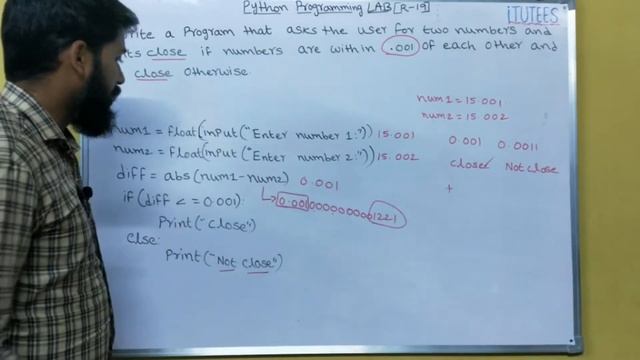 Python Programming LAB [R-19]
iTUTEES
rite a Program that asks the user for two numbers and
ts close if numbers are within .001 of each other and
close otherwise.
num1 = 15.001
num2 = 15.002
num1 = float(input("Enter number 1:")) 15.001
0.001 0.0011
num2 = float(input("Enter number 2:")) 15.002
close Not close
diff = abs(num1-num2) 0.001
if (diff <= 0.001):
Print("close")
else:
Print("Not close")